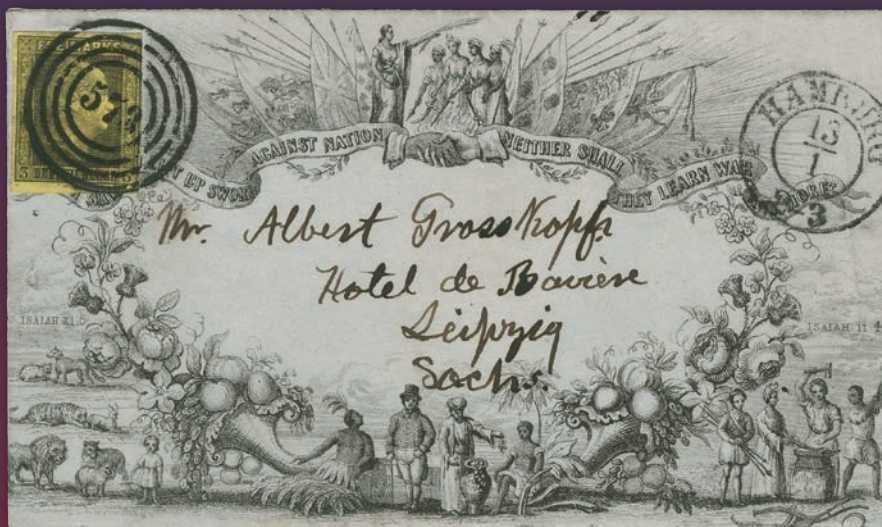 FREIMARKE
3
573
AGAINST NATION
NEITHER SHALL
THEY LEARN WAR
HAMBURG
13
1
2-3
Mr. Albert Grosskopf
Hotel de Bavière
Leipzig
Sachs.
ISAIAH 11.
ISAIAH 11